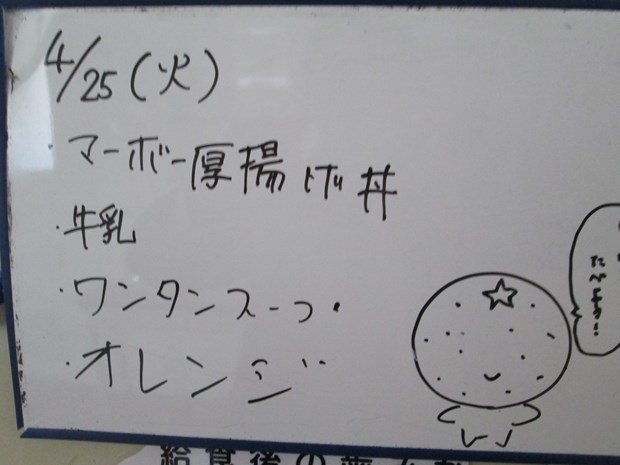 4/25(火)
・マーボー厚揚げ丼
・牛乳
・ワンタンスープ
・オレンジ
給食後の